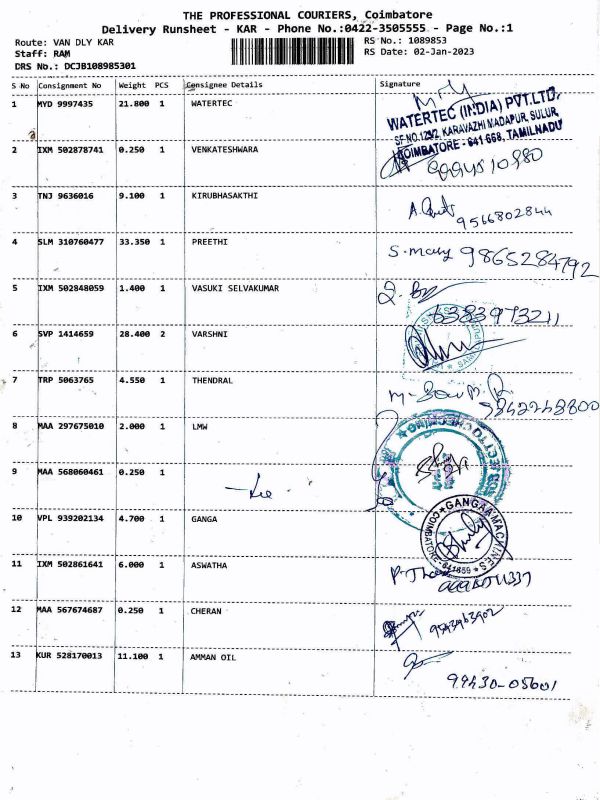 THE PROFESSIONAL COURIERS, Coimbatore
Delivery Runsheet - KAR - Phone No.:0422-3505555 - Page No.:1
Route: VAN DLY KAR RS No.: 1089853
Staff: RAM RS Date: 02-Jan-2023
DRS No.: DCJB108985301
S No Consignment No Weight PCS Consignee Details Signature
1 MYD 9997435 21.800 1 WATERTEC
WATERTEC (INDIA) PVT.LTD.
SF.NO.129/2, KARAVAZHI MADAPUR, SULUR,
COIMBATORE - 641 668, TAMILNADU
2 IXM 502878741 0.250 1 VENKATESHWARA
3 TNJ 9636016 9.100 1 KIRUBHASAKTHI
9566802844
4 SLM 310760477 33.350 1 PREETHI S. mary 9865284792
5 IXM 502848059 1.400 1 VASUKI SELVAKUMAR
6383973211
6 SVP 1414659 28.400 2 VARSHNI
7 TRP 5063765 4.550 1 THENDRAL
8 MAA 297675010 2.000 1 LMW
9 MAA 568060461 0.250 1
10 VPL 939202134 4.700 1 GANGA
GANGAA MACHINES
COIMBATORE
11 IXM 502861641 6.000 1 ASWATHA
12 MAA 567674687 0.250 1 CHERAN
13 KUR 528170013 11.100 1 AMMAN OIL
99430-05601